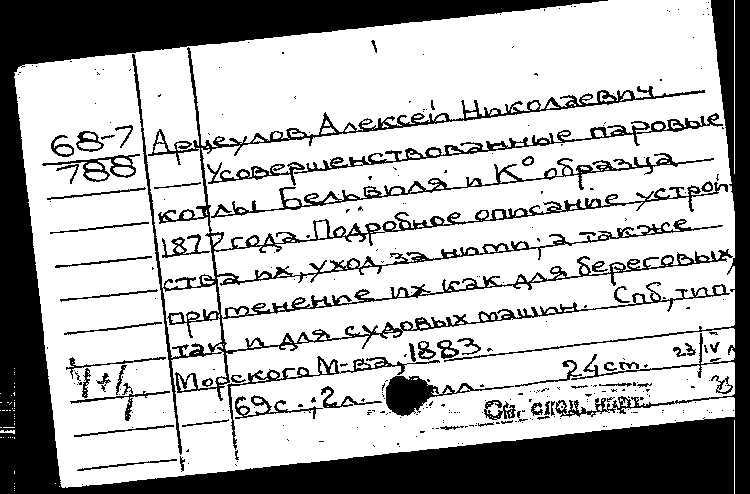 68-7
788
Арцеулов, Алексей Николаевич.
Усовершенствованные паровые
котлы Бельвиля и К° образца
1877 года. Подробное описание устрой-
ства их, уход за ними; а также
применение их как для береговых,
так и для судовых машин. Спб., тип.
Морского М-ва, 1883.
69с.; 2л. илл. 24ст.
23/IV
См. след. карт.